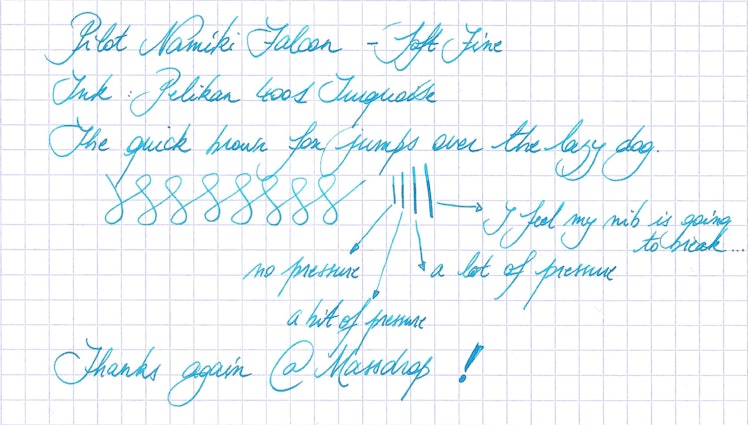 Pilot Namiki Falcon - Soft Fine
Ink : Pelikan 4001 Turquoise
The quick brown fox jumps over the lazy dog.
I feel my nib is going
to break...
no pressure
a lot of pressure
a bit of pressure
Thanks again @ Massdrop !